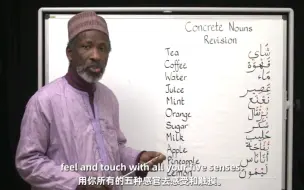 Concrete Nouns
Revision
Tea شَاي
Coffee قَهْوَة
Water مَاء
Juice عَصِير
Mint نَعْنَع
Orange
Sugar سُكَّر
Milk حَلِيب
Apple
Pineapple أَنَانَاس
Lemon لَيْمُون
feel and touch with all your five senses.
用你所有的五种感官去感受和触摸。